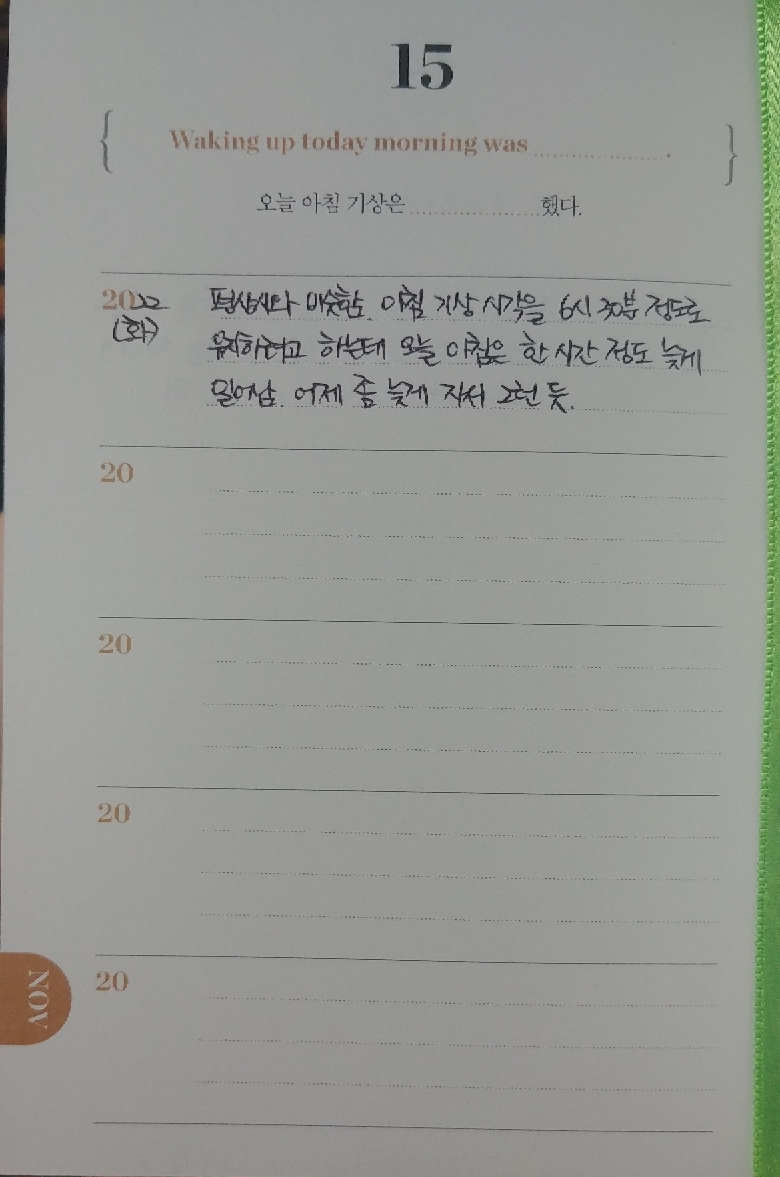 15
{ Waking up today morning was .................... . }
오늘 아침 기상은 .................... 했다.
2022 평상시와 비슷함. 아침 기상 시각을 6시 30분 정도로
(화) 유지하려고 하는데 오늘 아침은 한 시간 정도 늦게
일어남. 어제 좀 늦게 자서 그런 듯.
20
20
20
20
NOV